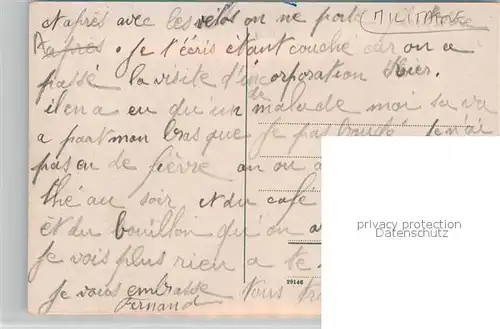 et après avec les vélos on ne part (MILITAIRE
Après. Je t'écris étant couché car on a
passé la visite d'incorporation hier.
il en a eu qu'un de malade moi sa va
a part mon bras que je pas bougé. Je n'ai
pas eu de fièvre on ou a
thé au soir et du café
et du bouillon qu'on a
je vois plus rien a te
Je vous embrasse tous
Fernand
20146
privacy protection
Datenschutz